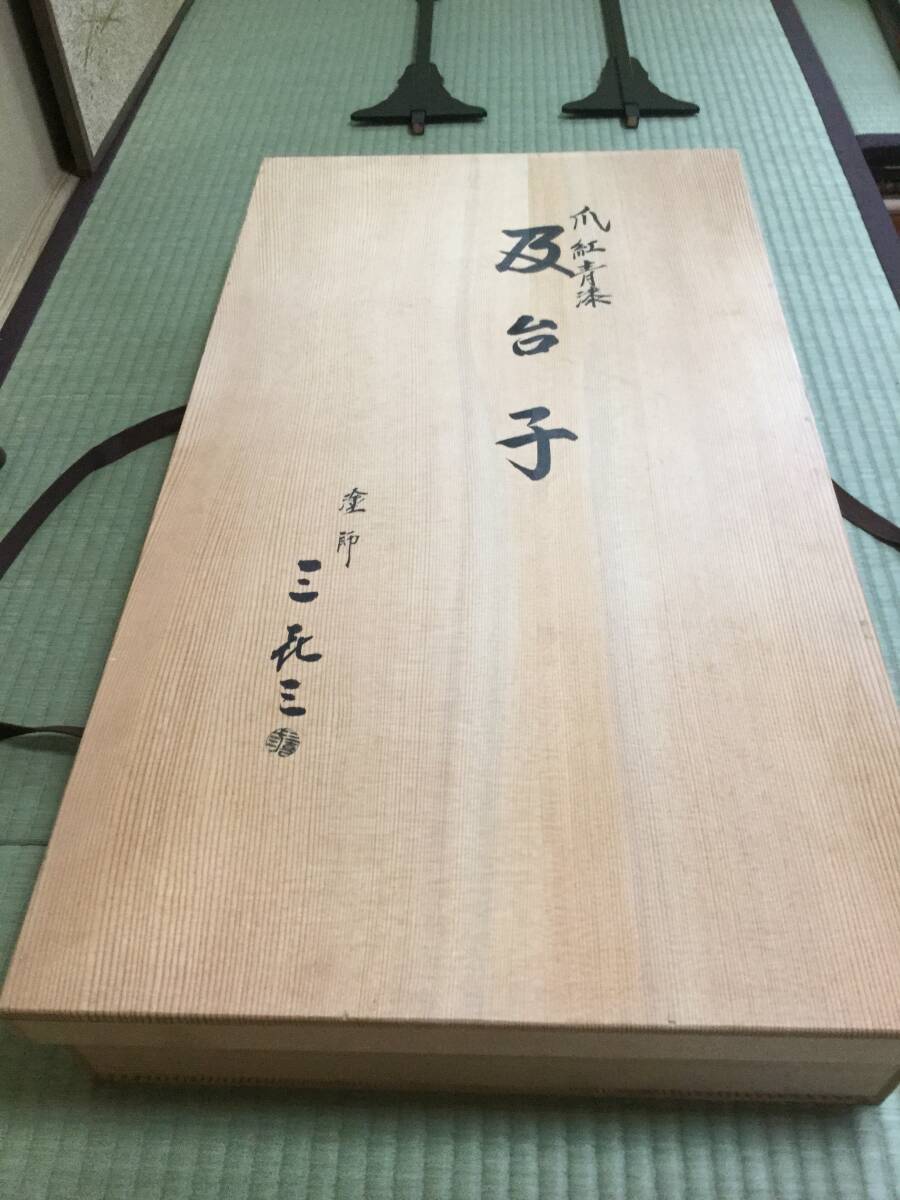 爪紅青漆
及台子
塗師
三㐂三